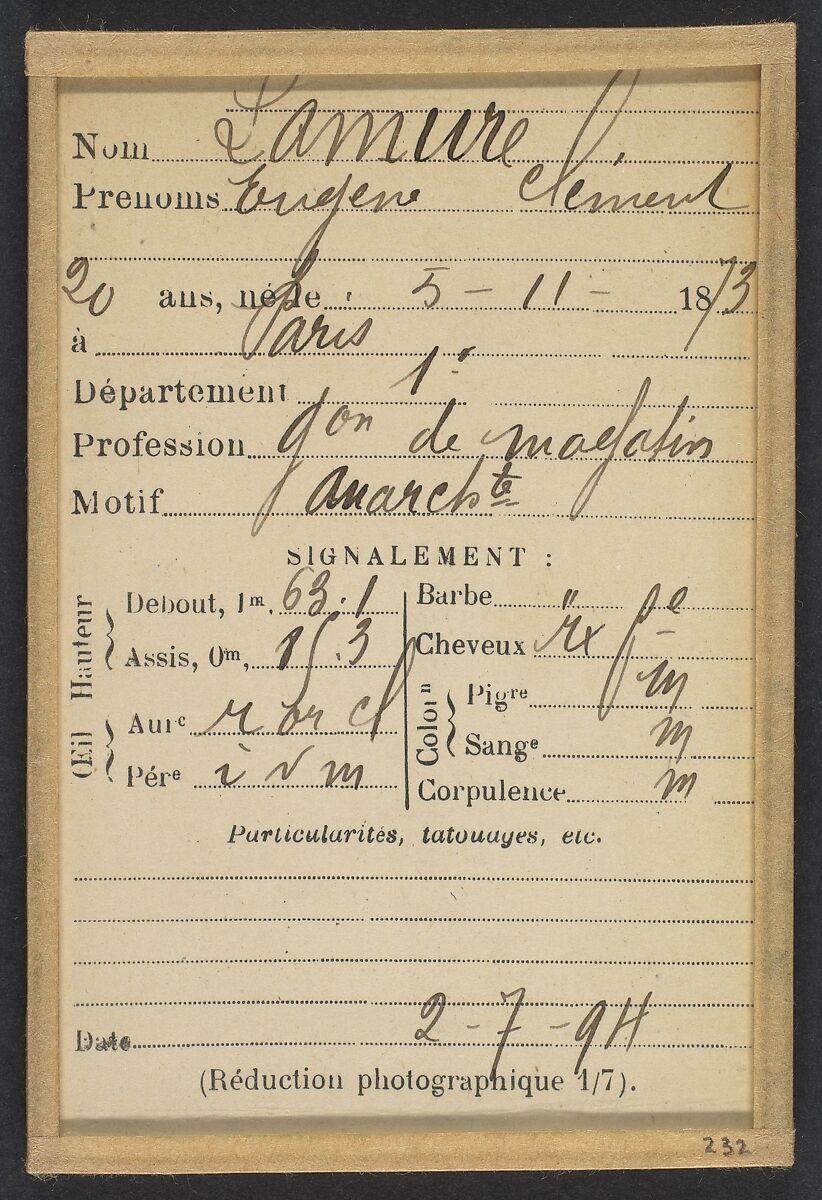 Nom Lamure
Prénoms Eugène Clément
20 ans, né le 5 - 11 - 1873
à Paris
Département 1e
Profession gon de magasin
Motif anarchte
SIGNALEMENT :
Hauteur
Debout, 1m, 63.1
Assis, 0m,
Œil
Aurc r or cl
Pére i v m
Barbe "
Cheveux
Colorn
Pigre m
Sange m
Corpulence m
Particularités, tatouages, etc.
Date 2-7-94
(Réduction photographique 1/7).
232